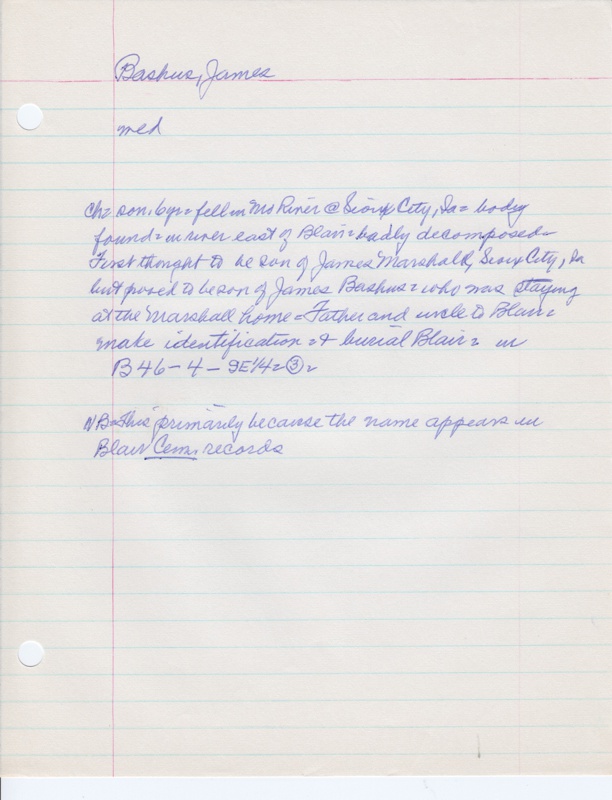 Bashus, James
med
Ch= son, 6 yr= fell in Mo River @ Sioux City, Ia= body
found= in river east of Blair= badly decomposed=
First thought to be son of James Marshall, Sioux City, Ia
but proved to be son of James Bashus= who was staying
at the Marshall home= Father and uncle to Blair=
make identification & burial Blair= in
B46-4-SE1/4= ③=
NB= this primarily because the name appears in
Blair Cem. records